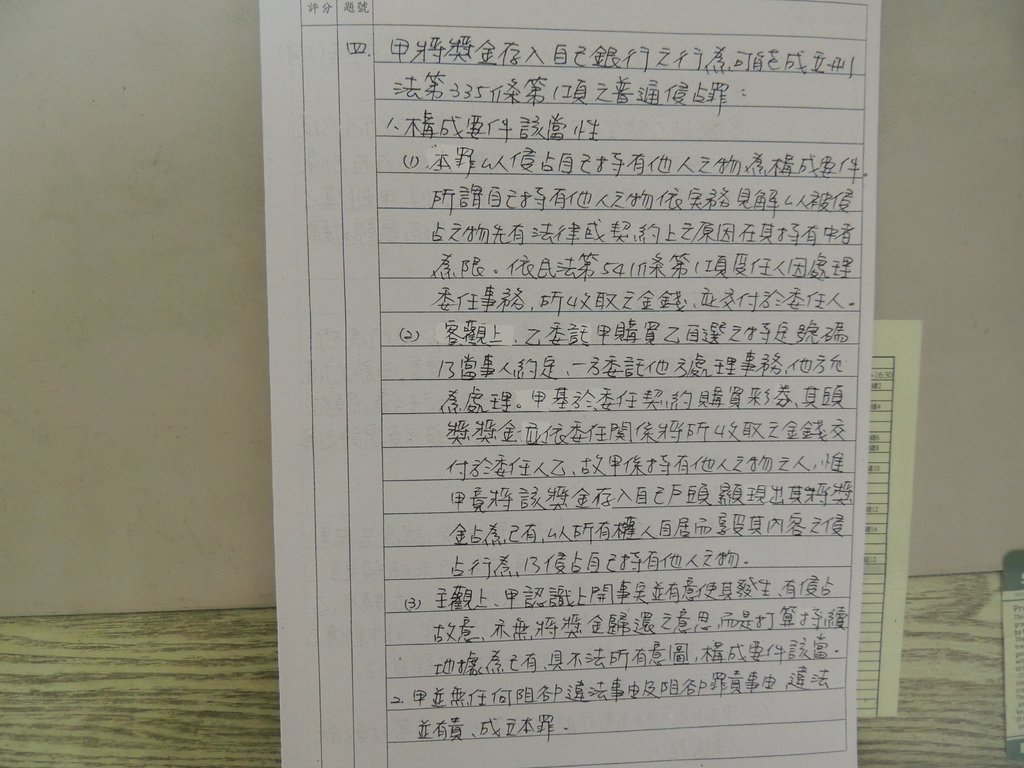 評分 題號
四、甲將獎金存入自己銀行之行為,可能成立刑
法第335條第1項之普通侵占罪:
1、構成要件該當性
(1) 本罪以侵占自己持有他人之物為構成要件。
所謂自己持有他人之物,依實務見解以被侵
占之物先有法律或契約上之原因在其持有中者
為限。依民法第541條第1項受任人因處理
委任事務,所收取之金錢,應交付於委任人。
(2) 客觀上、乙委託甲購買乙自選之特定號碼
乃當事人約定,一方委託他方處理事務,他方允
為處理。甲基於委任契約購買彩券、其頭
獎獎金並依委任關係將所收取之金錢交
付於委任人乙、故甲係持有他人之物之人,惟
甲竟將該獎金存入自己戶頭,顯現出其將獎
金占為己有,以所有權人自居而享受其內容之侵
占行為,乃侵占自己持有他人之物。
(3) 主觀上、甲認識上開事實並有意使其發生,有侵占
故意,亦無將獎金歸還之意思,而是打算持續
地據為己有,具不法所有意圖,構成要件該當。
2、甲並無任何阻卻違法事由及阻卻罪責事由,違法
並有責、成立本罪。